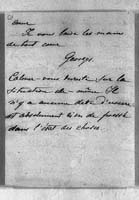 Je vous baise les mains
de tout cœur
Georges.
Calmez-vous ensuite sur la
situation de même. Il
n'y a aucune date d'arrêté
et absolument rien de pressé
dans l'état des choses.